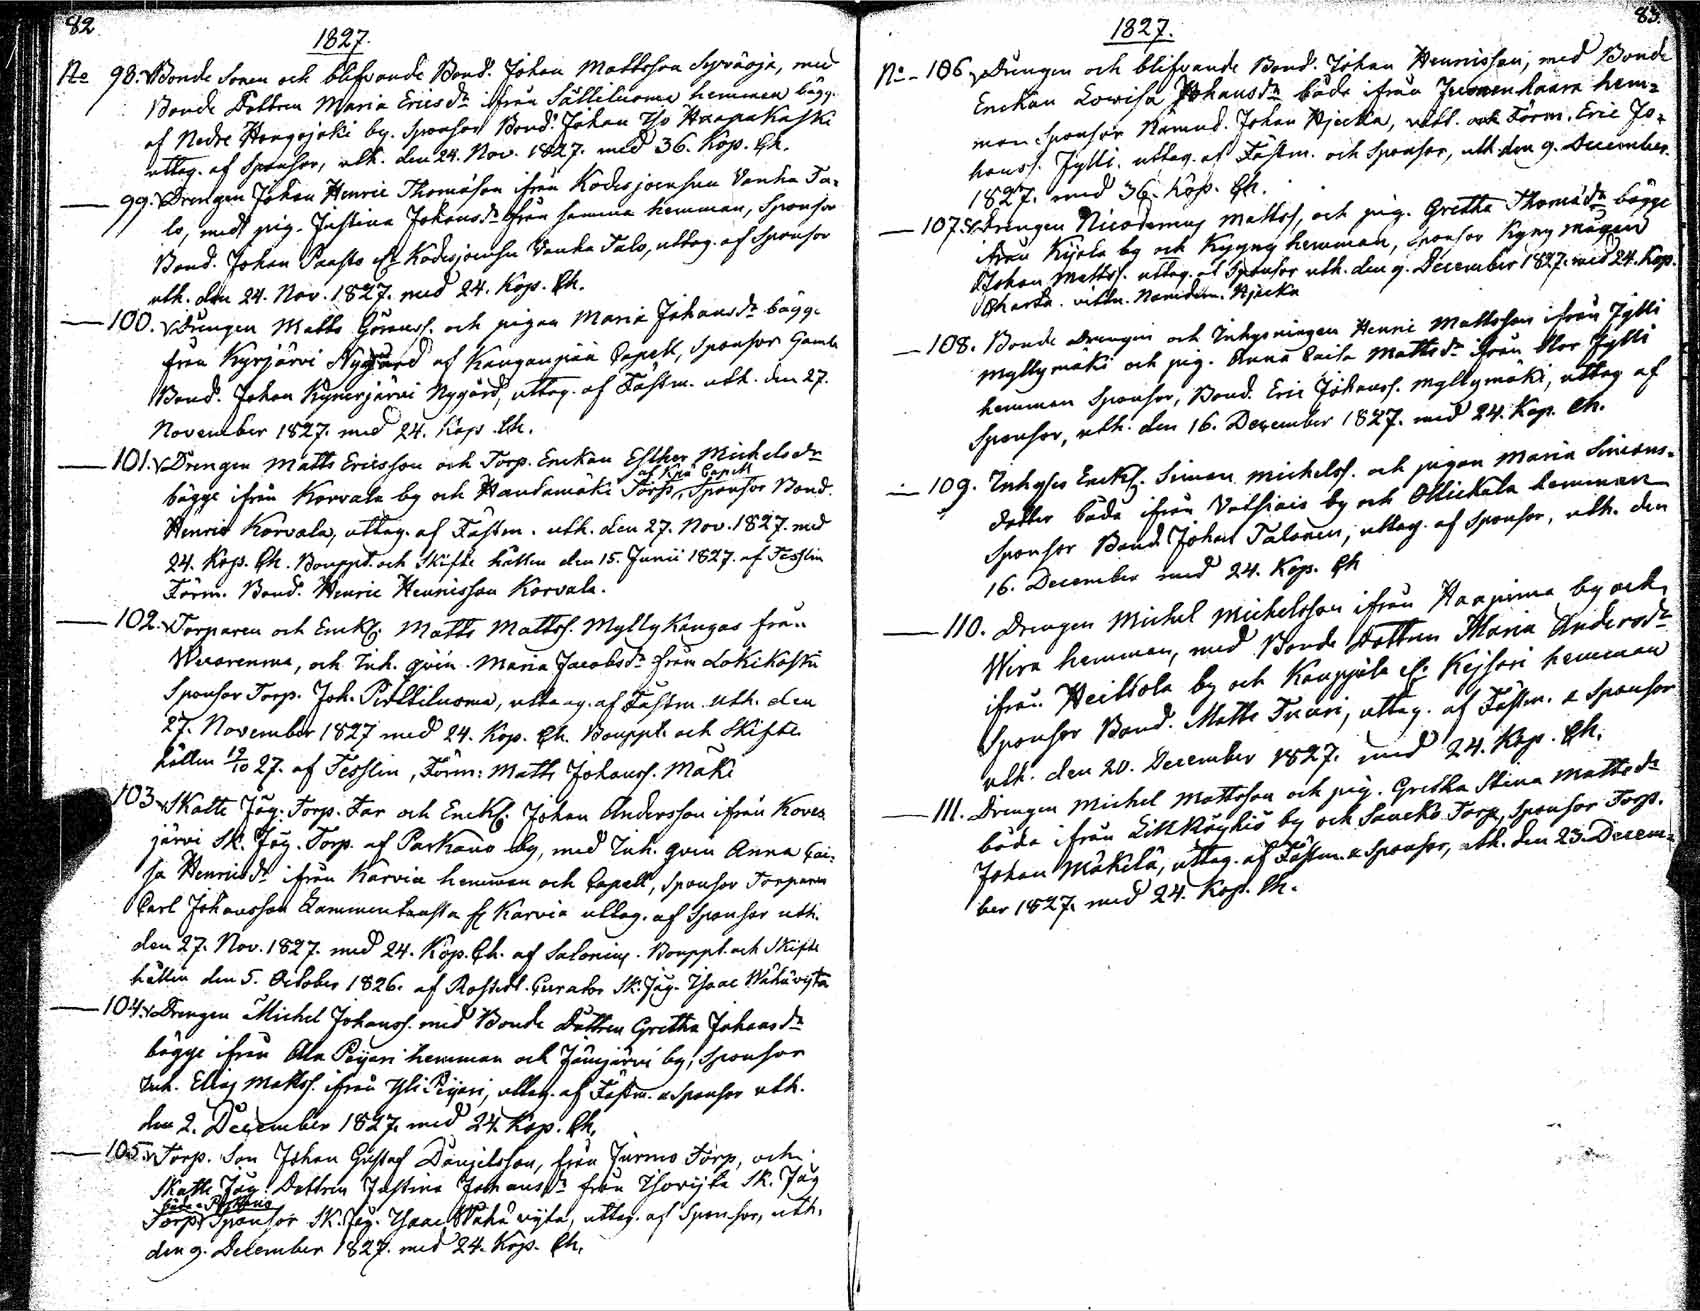 82
1827.
No 98. Bonde Sonen och blifvande Bond. Johan Mattsson Syväoja, med
Bonde Dottren Maria Ericsdr ifrån Sältiluoma hemman bägg.
af Nedre Hongojoki by. Sponsor Bond. Johan Iso Haapakoski
uttag. af Sponsor, utk. den 24. Nov. 1827. med 36. Kop. Ch.
99. Drengen Johan Henric Thomasson ifrån Kodesjoensuu Vanha Ta-
lo, med pig. Justina Johansdr från samma hemman, Sponsor
Bond. Johan Paasto Kodesjoensuu Vanha Talo, uttag. af Sponsor
utk. den 24. Nov. 1827. med 24. Kop. Ch.
100. Drengen Matts Göranss. och pigan Maria Johansdr bägge
från Kyrjärvi Nygård af Kangaspää Capell, Sponsor Gamle
Bond. Johan Kynerjärvi Nygård, uttag. af Fästm. utk. den 27.
November 1827. med 24. Kop. Ch.
101. Drengen Matts Ericsson och Torp. Enckan Esther Michelsdr
af Capell
bägge ifrån Korvala by och Haudamäki Torp, Sponsor Bond.
Henric Korvala, uttag. af Fästm. utk. den 27. Nov. 1827. med
24. Kop. Ch. Bouppt. och Skifte hållen den 15. Junii 1827. af Fesslin
Förm. Bond. Henric Henrisson Korvala.
102. Torparen och Enckl. Matts Mattss. Myllykangas från
Wuorenmaa, och Inh. qvin. Maria Jacobsdr från Lokikoski
Sponsor Torp. Joh. Pirttiluoma, uttag. af Fästm. utk. den
27. November 1827 med 24. Kop. Ch. Bouppt. och Skifte
hållen 19/10 27. af Fesslin, Förm: Matts Johanss. Mäki
103. Skatte Jäg. Torp. Far och Enckl. Johan Andersson ifrån Koves
järvi Sk. Jäg. Torp. af Parkano by, med Inh. qvin Anna Cai-
sa Henricsdr ifrån Karvia hemman och Capell, Sponsor Torparen
Carl Johansson Lammentausta Karvia uttag. af Sponsor utk.
den 27. Nov. 1827. med 24. Kop. Ch. af Salonius. Bouppt. och Skifte
hållen den 5. October 1826. af Rostedt. Curator Sk. Jäg. Isaac Wähävysta
104. Drengen Michel Johanss. med Bonde Dottren Gretha Johansdr
bägge ifrån Ala Peijari hemman och Jämijärvi by, Sponsor
Inh. Elias Mattss. ifrån Yli Peijari, uttag. af Fästm. & Sponsor utk.
den 2. December 1827. med 24. Kop. Ch.
105. Torp. Son Johan Gustaf Danjelsson, från Jurmo Torp, och
Skatte Jäg. Dottren Justina Johansdr från Isovysta Sk. Jäg
både i Parkano
Torp. Sponsor Sk. Jäg. Isaac Wähävysta, uttag. af Sponsor, utk.
den 9. December 1827. med 24. Kop. Ch.
83.
1827.
No 106. Drengen och blifvande Bond. Johan Henrisson, med Bonde
Enckan Lovisa Johansdr både ifrån Juonenhaara hem-
man. Sponsor Nämnd. Johan Hjerka, vittl. och Förm. Eric Jo-
hanss. Jylli. uttag. af Fästm. och Sponsor, utk. den 9. December
1827. med 36. Kop. Ch.
107. Drengen Nicodemus Mattss. och pig. Gretha Thomasdr bägge
ifrån Kijala by och Kyyny hemman, Sponsor Kyny mågen
Johan Mattss. uttag. af Sponsor utk. den 9. December 1827. med 24. Kop.
Charta. vittn. Nämdem. Hjerka
108. Bonde drengen och Inhysningen Henric Mattsson ifrån Jylli
Myllymäki och pig. Anna Caisa Mattsdr ifrån Stor Jylli
hemman Sponsor, Bond. Eric Johanss. Myllymäki, uttag af
Sponsor, utk. den 16. December 1827. med 24. Kop. Ch.
109. Inhyses Enckl. Simon Michelss. och pigan Maria Simons-
dotter både ifrån Vatsiais by och Ollickala hemman
Sponsor Bond Johan Talonen, uttag. af Sponsor, utk. den
16. December med 24. Kop. Ch
110. Drengen Michel Michelsson ifrån Haapima by och
Wira hemman, med Bonde Dottren Maria Andersdr
ifrån Heittola by och Kauppila Kejsari hemman
Sponsor Bond. Matts Tuori, uttag. af Fästm. & Sponsor
utk. den 20. December 1827. med 24. Kop. Ch.
111. Drengen Michel Mattsson och pig. Gretha Stina Mattsdr
båda ifrån Lill Röyhiö by och Saucko Torp, Sponsor Torp.
Johan Mäkilä, uttag. af Fästm. & Sponsor, utk. den 23. Decem-
ber 1827. med 24. Kop. Ch.